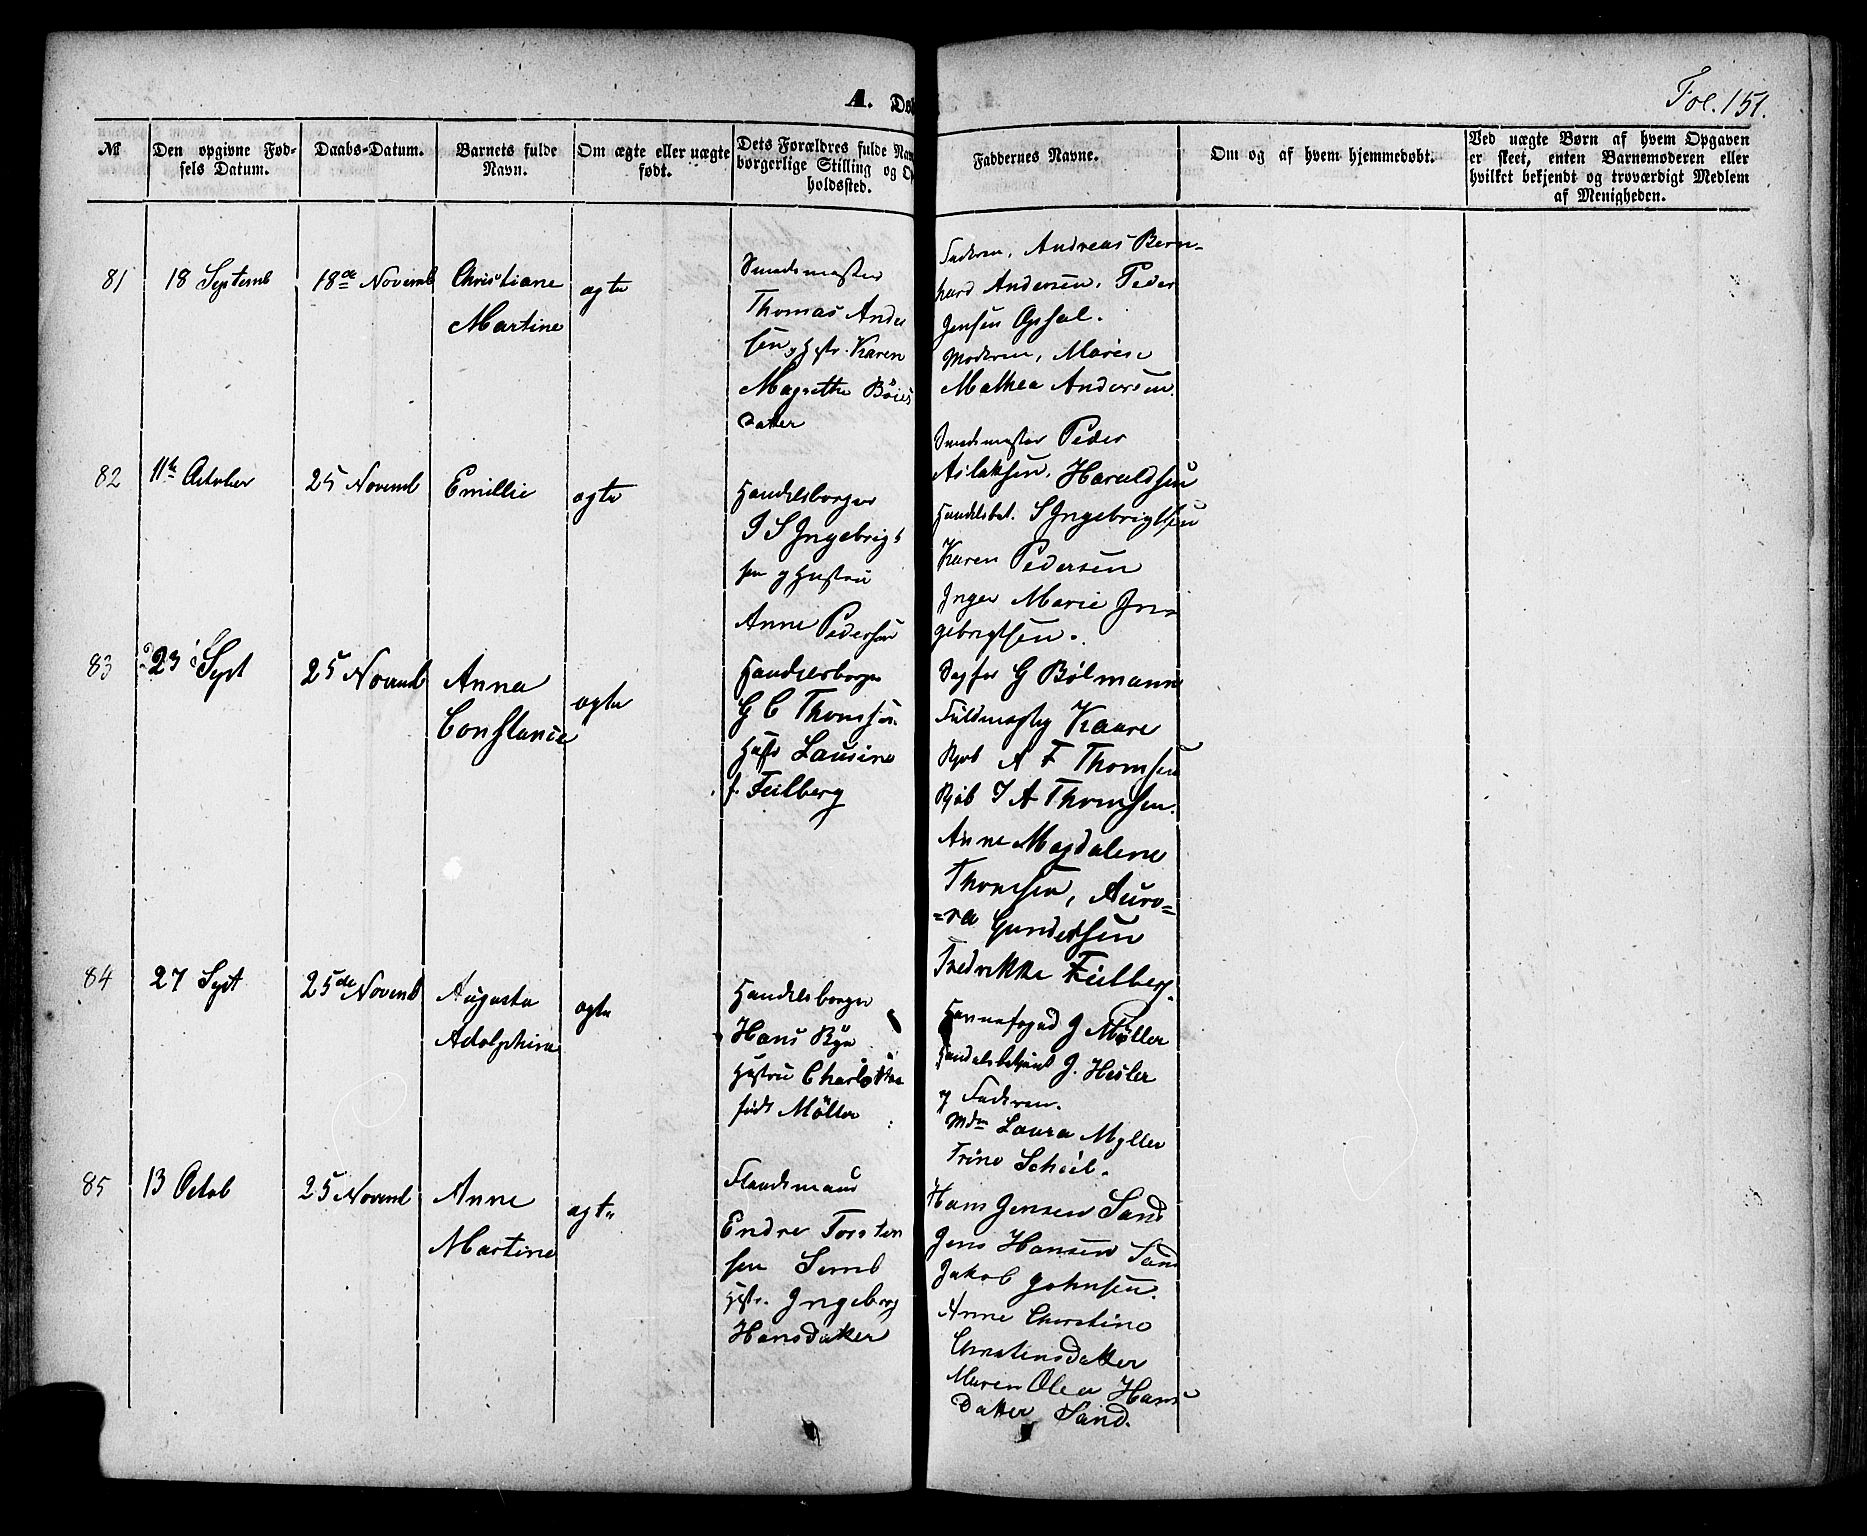 Fol. 151.
A. Døb
№
Den opgivne Fød-
sels Datum.
Daabs-Datum.
Barnets fulde
Navn.
Om ægte eller uægte
født.
Dets Forældres fulde Nav
borgerlige Stilling og Op
holdssted.
Faddernes Navne.
Om og af hvem hjemmedøbt.
Ved uægte Børn af hvem Opgaven
er skeet, enten Barnemoderen eller
hvilket bekjendt og troværdigt Medlem
af Menigheden.
81
18 Septemb
18de Novemb
Christiane
Martine
ægte
Smedsmester
Thomas Ander
sen og Hstr. Karen
Magrethe Böies
datter
Faderen, Andreas Bern-
hard Andersen. Peder
Jensen Opsal.
Moderen, Marise
Mathea Andersen.
82
11te October
25 Novemb
Emillie
ægte
Handelsborger
I S Ingebrigt
sen og Hustru
Anne Pedersen
Smedmester Peder
Aslaksen, Haraldsen
Handelsbet. S Ingebrigtsen
Karen Pedersen
Inger Marie In-
gebrigtsen.
83
23 Sept
25 Novemb
Anna
Constance
ægte
Handelsborger
G C Thomsen
Hustr Lausine
f. Feilberg
Sagfør G Bölmann
Fuldmægtig Kaare
Kjøb A F Thomsen
Kjöb I A Thomsen.
Anne Magdalene
Thomsen, Auro=
=ra Gundersen
Fredrikke Feilberg.
84
27 Sept
25de Novemb
Augusta
Adolphine
ægte
Handelsborger
Hans
Hustru Charlotte
født Möller
Havnefoged J Møller
Handelsbetjent J. Hesler
og Faderen.
Mdm Laura Myller
Trine Scheel.
85
13 Octob
25 Novemb
Anne
Martine
ægte
Standsmand
Endre Torsten
sen Semb
Hstr. Ingeborg
Hansdatter
Hans Jensen Sand
Jens Hansen Sand
Jakob Johnsen.
Anne Christine
Christensdatter
Maren Olea Hans
datter Sand.